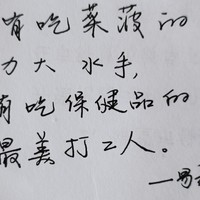 有吃菜菠的
力大水手,
有吃保健品的
最美打工人。
一男